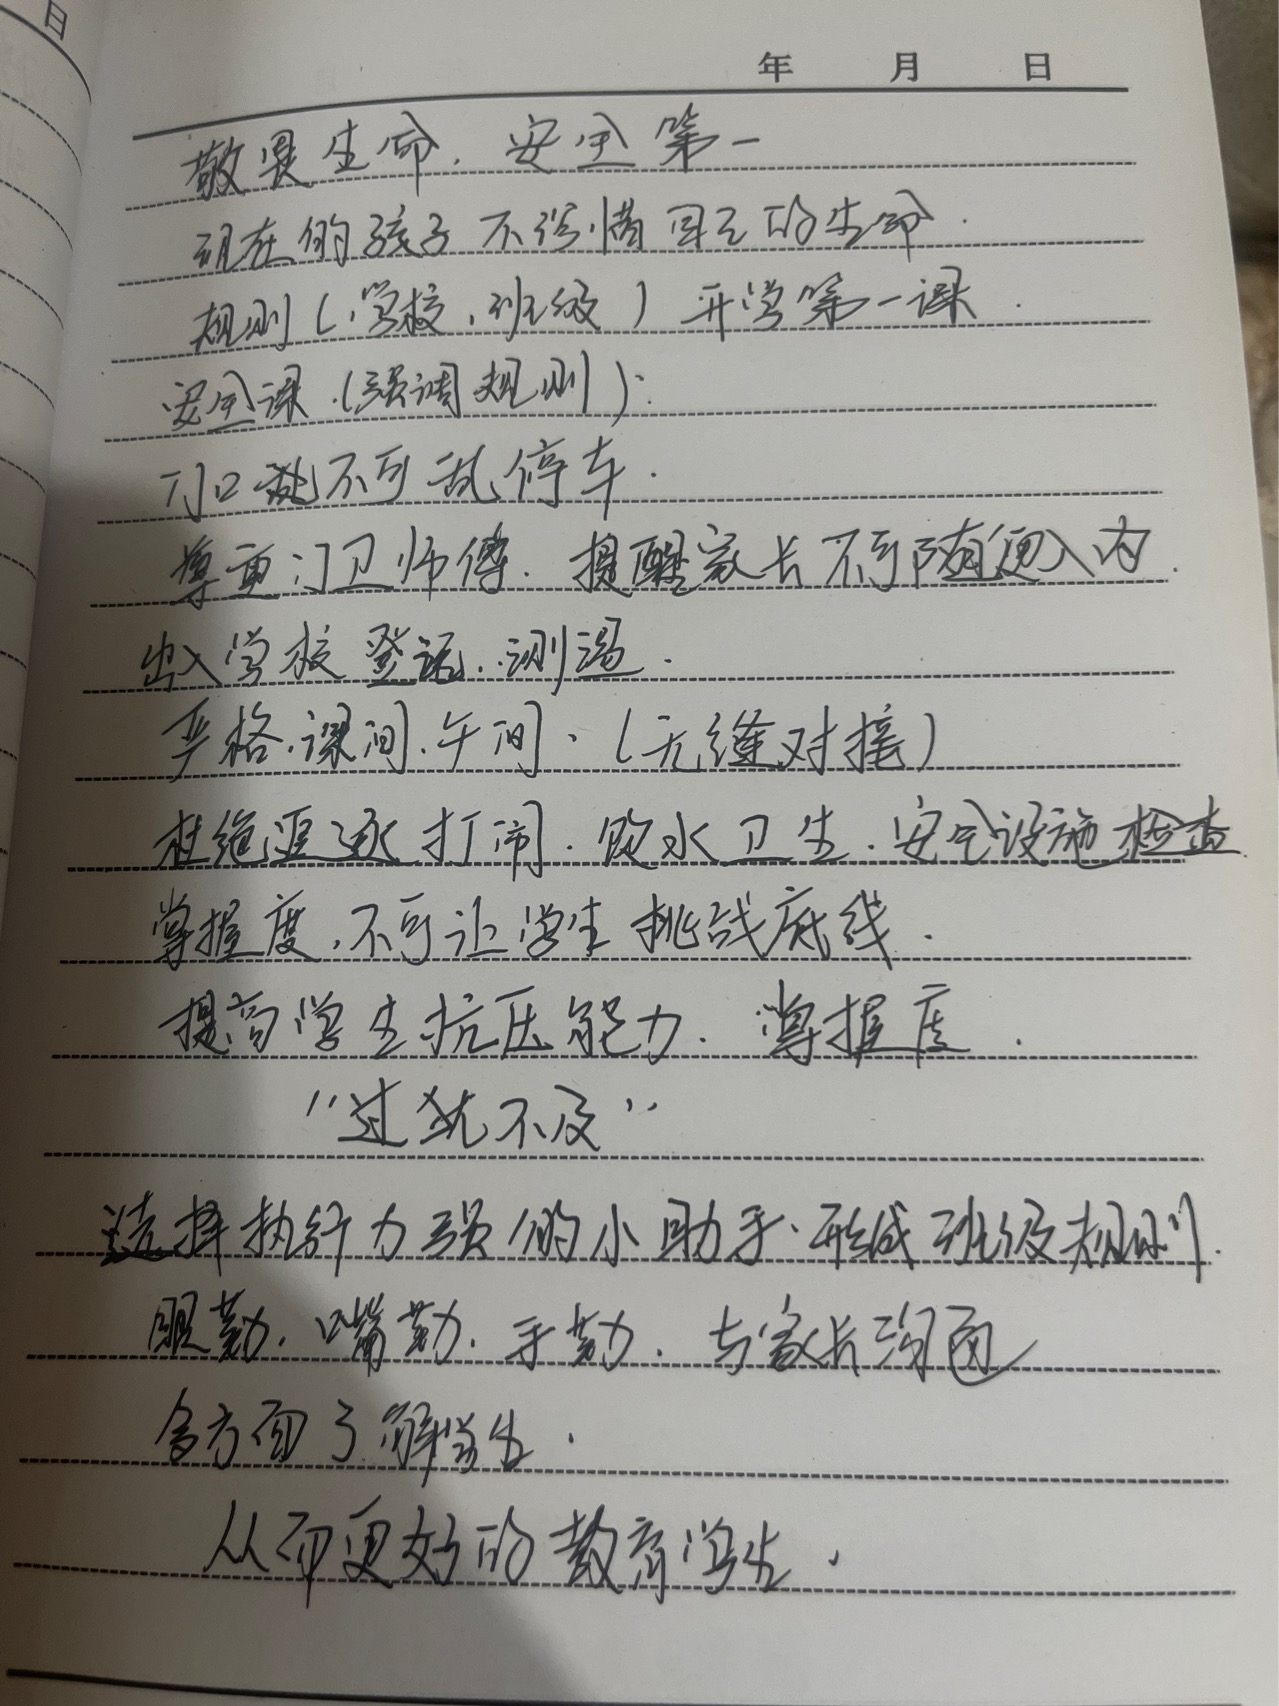 日
年 月 日
敬畏生命. 安全第一
现在的孩子不珍惜自己的生命.
规则(学校、班级) 开学第一课.
安全课.(强调规则).
门口 不可乱停车.
尊重门卫师傅. 提醒家长不可随便入内.
出入学校登记. 测温.
严格.课间.午间.(无缝对接)
杜绝追逐打闹. 饮水卫生. 安全设施检查.
掌握度.不可让学生挑战底线.
提高学生抗压能力. 掌握度.
“过犹不及”
选择执行力强的小助手.形成班级规则.
眼勤. 嘴勤. 手勤. 与家长沟通
多方面了解学生.
从而更好的教育学生.